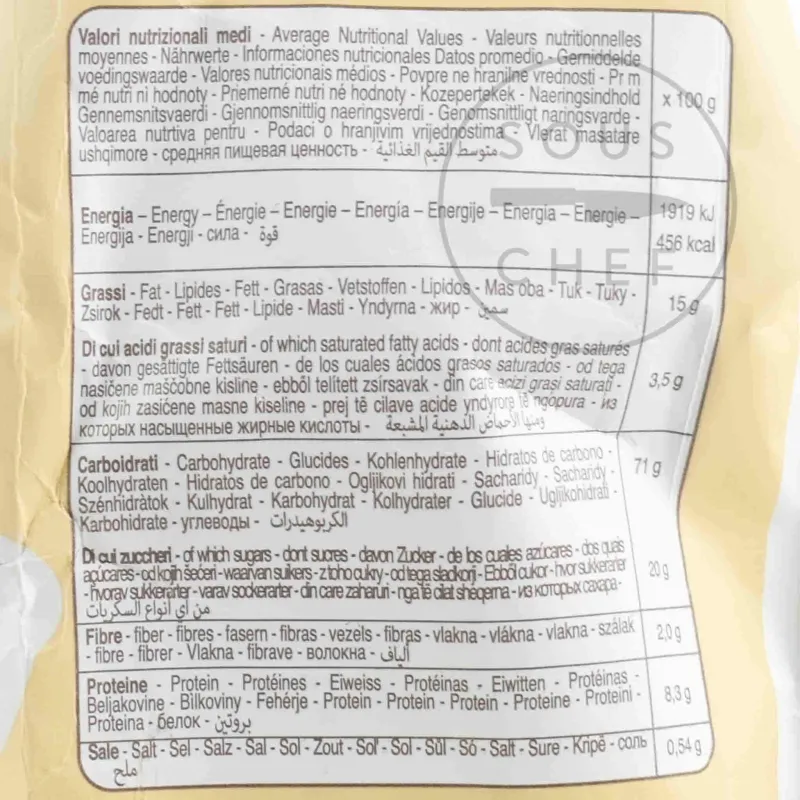 Valori nutrizionali medi - Average Nutritional Values - Valeurs nutritionnelles
moyennes - Nährwerte - Informaciones nutricionales Datos promedio - Gemiddelde
voedingswaarde - Valores nutricionais médios - Povpre ne hranilne vrednosti - Pr m
mé nutri ni hodnoty - Priemerné nutri né hodnoty - Kozepertekek - Naeringsindhold
x 100 g
Gennemsnitsvaerdi - Gjennomsnittlig naeringsverdi - Genomsnittligt naringsvarde -
Valoarea nutrtiva pentru - Podaci o hranjivim vrijednostima - Vlerat masatare
ushqimore - средняя пищевая ценность - متوسط القيم الغذائية
SOUS
CHEF
Energia – Energy – Énergie – Energie – Energía – Energije – Energia – Energie –
1919 kJ
Energija - Energji - сила - قوة
456 kcal
Grassi - Fat - Lipides - Fett - Grasas - Vetstoffen - Lipidos - Mas oba - Tuk - Tuky -
15 g
Zsirok - Fedt - Fett - Fett - Lipide - Masti - Yndyrna - жир - سمين
Di cui acidi grassi saturi - of which saturated fatty acids - dont acides gras saturés
- davon gesättigte Fettsäuren - de los cuales ácidos grasos saturados - od tega
nasičene maščobne kisline - ebből telített zsírsavak - din care acizi grași saturati -
3,5 g
od kojih zasićene masne kiseline - prej të cilave acide yndyrore të ngopura - из
которых насыщенные жирные кислоты - ومنها الأحماض الدهنية المشبعة
Carboidrati - Carbohydrate - Glucides - Kohlenhydrate - Hidratos de carbono -
71 g
Koolhydraten - Hidratos de carbono - Ogljikovi hidrati - Sacharidy - Sacharidy -
Szénhidràtok - Kulhydrat - Karbohydrat - Kolhydrater - Glucide - Ugljikohidrati -
Karbohidrate - углеводы - الكربوهيدرات
Di cui zuccheri - of which sugars - dont sucres - davon Zucker - de los cuales azúcares - dos quais
açúcares - od kojih šećeri - waarvan suikers - z toho cukry - od tega sladkorji - Ebből cukor - hvor sukkerarter
20 g
- hvorav sukkerarter - varav sockerarter - din care zaharuri - nga të cilat sheqerna - из которых сахара -
من أي أنواع السكريات
Fibre - fiber - fibres - fasern - fibras - vezels - fibras - vlakna - vlákna - vlakna - szálak
2,0 g
- fibre - fibrer - Vlakna - fibrave - волокна - ألياف
Proteine - Protein - Protéines - Eiweiss - Protéinas - Eiwitten - Protéinas -
Beljakovine - Bilkoviny - Fehérje - Protein - Protein - Protein - Proteine - Proteini -
8,3 g
Proteina - белок - بروتين
Sale - Salt - Sel - Salz - Sal - Sol - Zout - Sol' - Sol - Sůl - Só - Salt - Sure - Kripë - соль
0,54 g
ملح